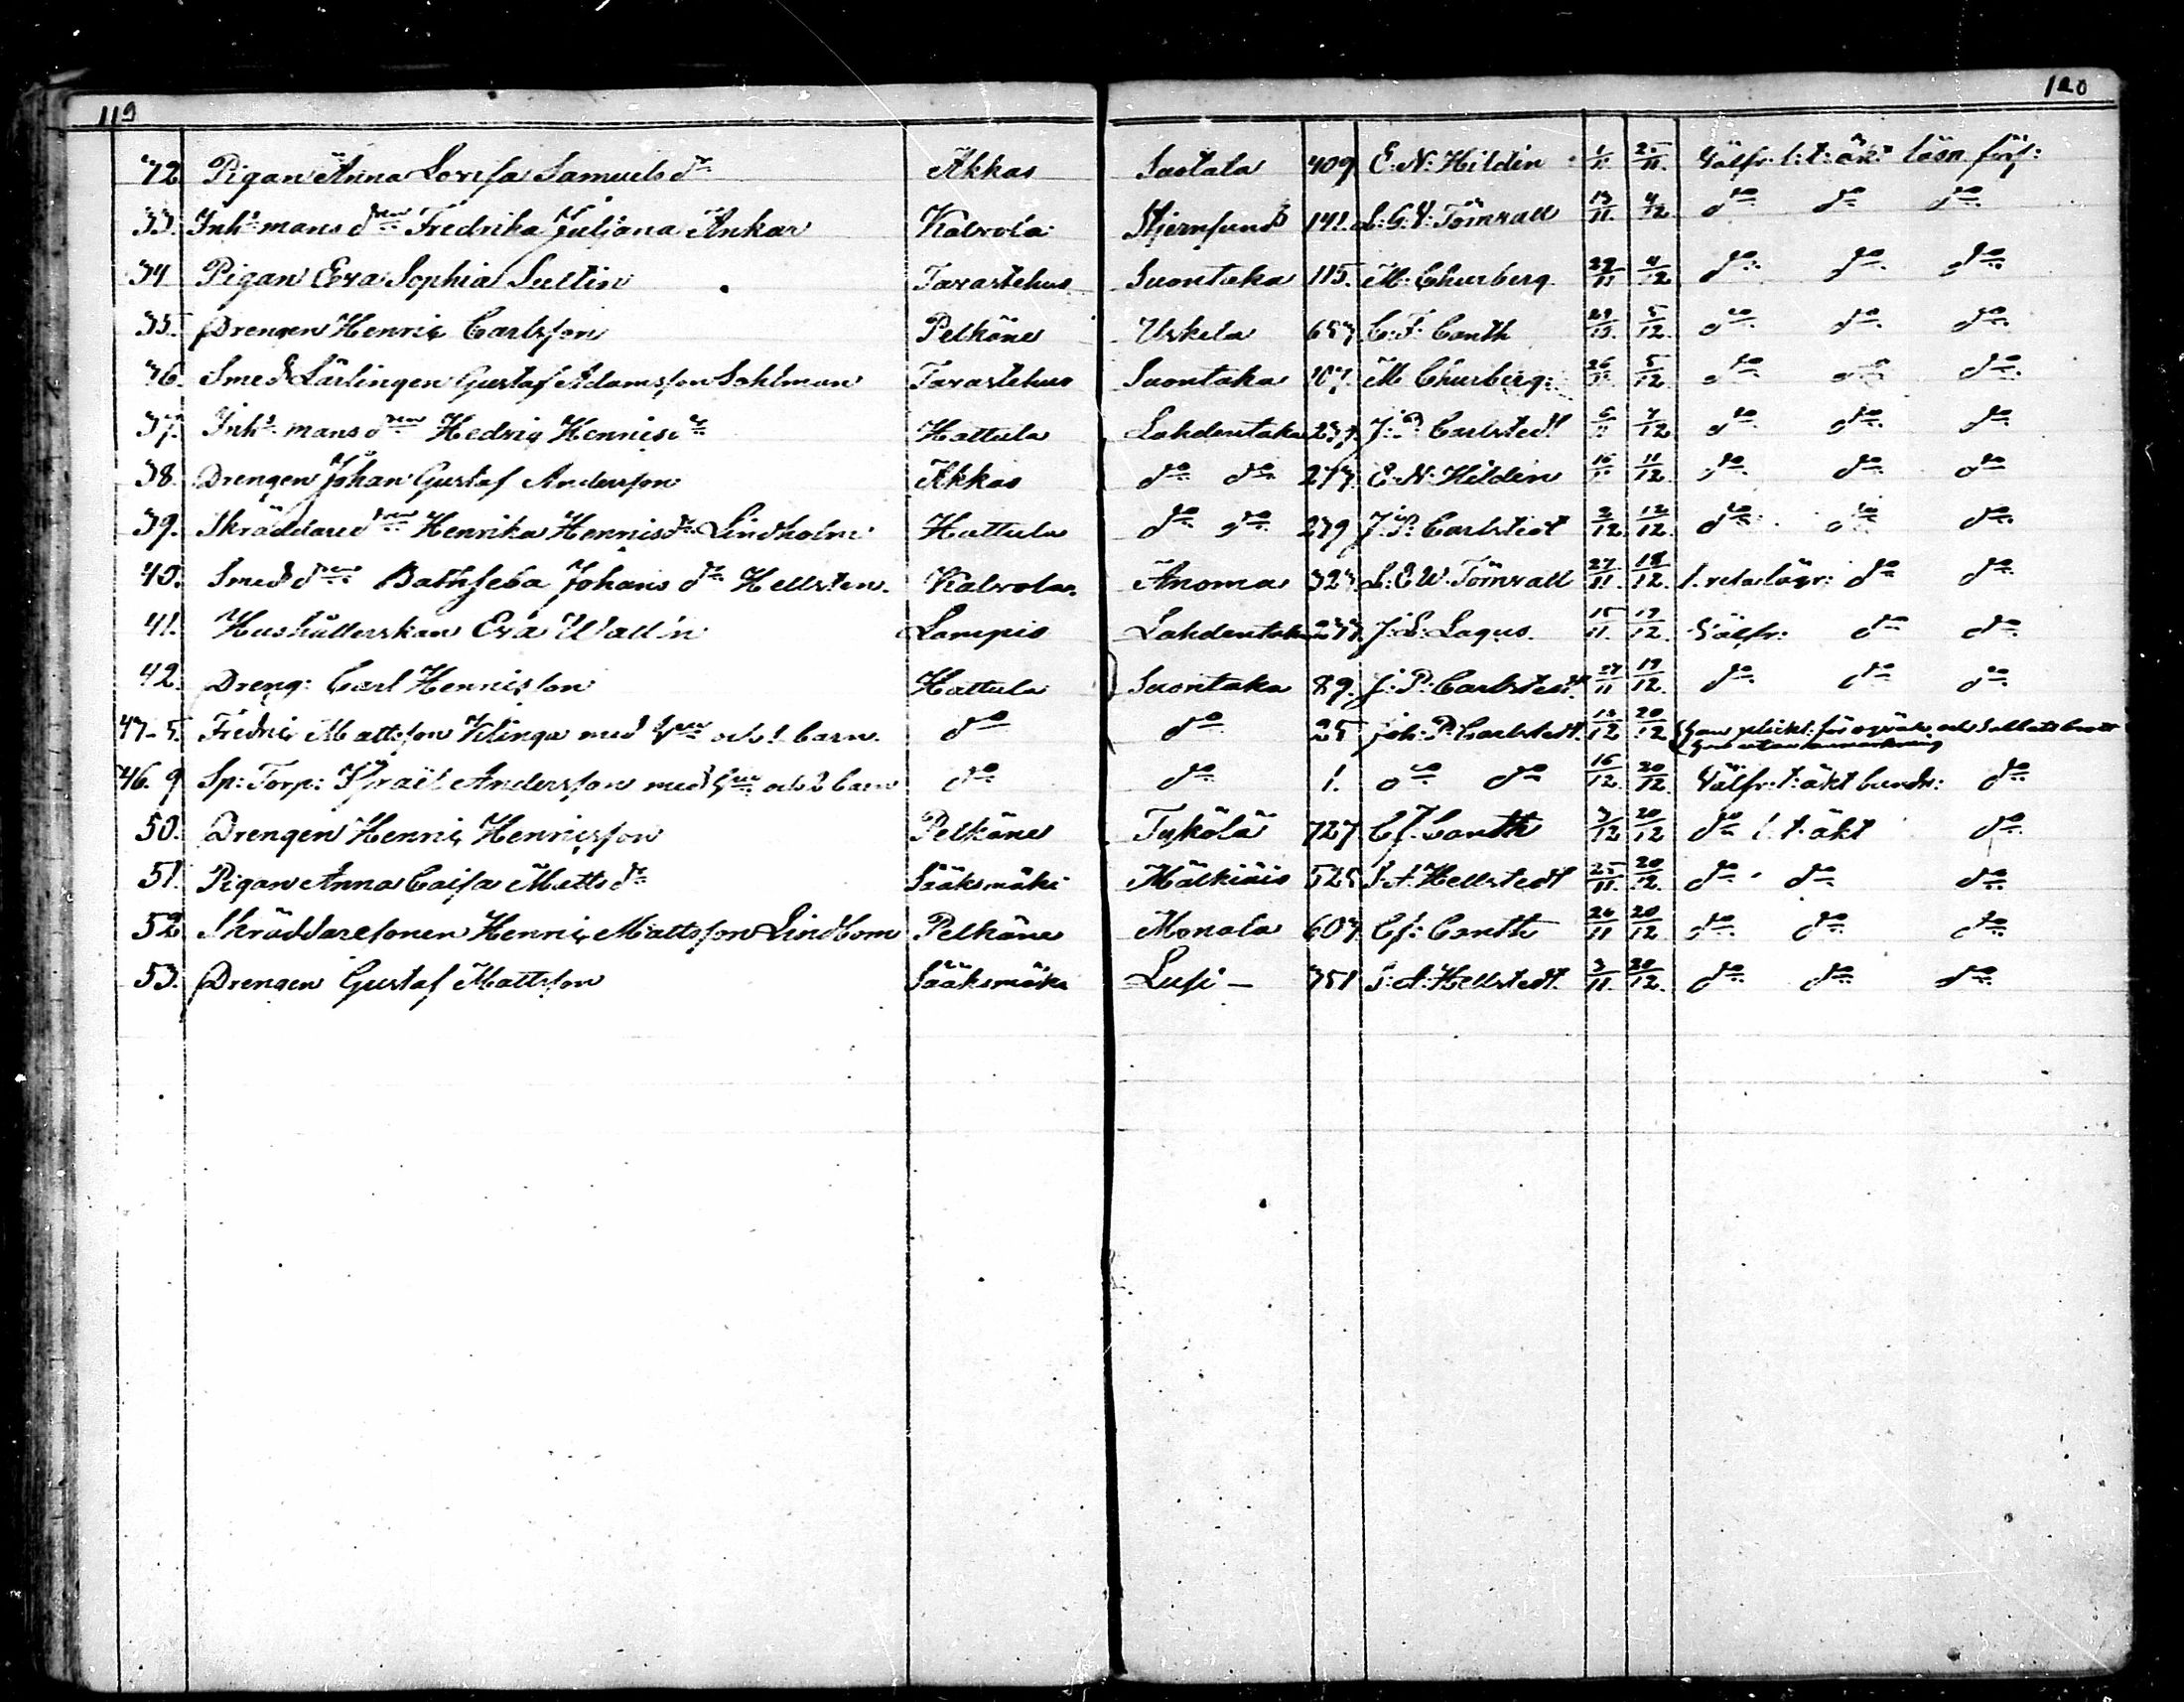 119
120
32 Pigan Anna Lovisa Samuels dr Akkas Saotala 409 E. N: Hildén 1/11 25/11 Välfr: l: t: äkt: läsn. förs:
33. Inhs mans dren Fredrika Juliana Ankar Kalvola Stjernsund 141. L: G. V: Törnvall 13/11. 4/12 do do do
34 Pigan Eva Sophia Sultin Tavastehus Suontaka 115. M: Churberg 29/11 4/12 do do do
35. Drengen Henric Carlsson Pelkäne Uskela 657 C: F: Canth 29/11. 5/12. do do do
36. Smeds Lärlingen Gustaf Adamsson Sohlman Tavastehus Suontaka 107. M Churberg: 26/11 5/12 do do do
37. Inhs mans dren Hedvig Henricsdr Hattula Lahdentaka 239. J: P: Carlstedt 6/11 7/12 do do do
38. Drengen Johan Gustaf Andersson Akkas do do 277. E: N: Hildén 16/11 11/12 do do do
39. Skräddare dren Henrika Henricsdr Lindholm Hattula do do 279 J: P: Carlstedt 2/12 12/12. do do do
40. Smeds dren Bathseba Johans dr Hellsten. Kalvola. Anoma 323. L: E W: Törnvall 27/11. 18/12. do do
41. Hushållerskan Eva Wallin Lampis Lahdentaka 277. J: L: Lagus. 15/11. 19/12. Välfr: do do
42. Dreng: Carl Henricsson Hattula Suontaka 89. J: P: Carlstedt. 27/11 19/12. do do do
43-5. Fredric Mattsson Klinga med hru och 1 barn. do do 25 Joh: P: Carlstedt. 13/12 20/12 han plikt: för och Sabbats brott
hon utan anmärkning
46. 9 Sp: Torp: Israël Andersson med hru och 2 barn do do 1. do do 16/12. 20/12 Välfr: t: äkt bundn: do
50. Drengen Henric Henricsson Pelkäne Tykölä 727 C f. Canth 3/12 20/12 do l: t: äkt do
51. Pigan Anna Caisa Matts dr Sääksmäki Mälkiäis 525 S. A: Hellstedt 25/11. 20/12. do do do
52 Skräddaresonen Henric Mattsson Lindbom Pelkäne Monala 607. C f: Canth 26/11 20/12 do do do
53. Drengen Gustaf Mattsson Sääksmäki Lusi - 351 S: A: Hellstedt. 3/11. 20/12. do do do